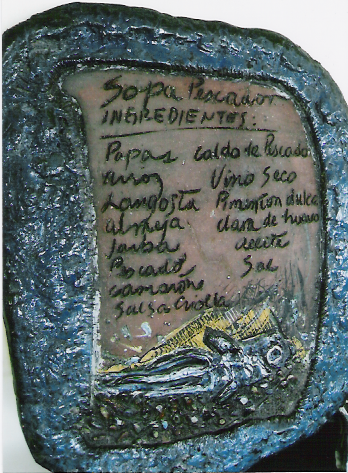 Sopa Pescador
INGREDIENTES:
Papas caldo de Pescado
arroz Vino Seco
Langosta Pimenton dulce
almeja clara de huevo
Jaiba aceite
Pescado Sal
camarón
Salsa Criolla